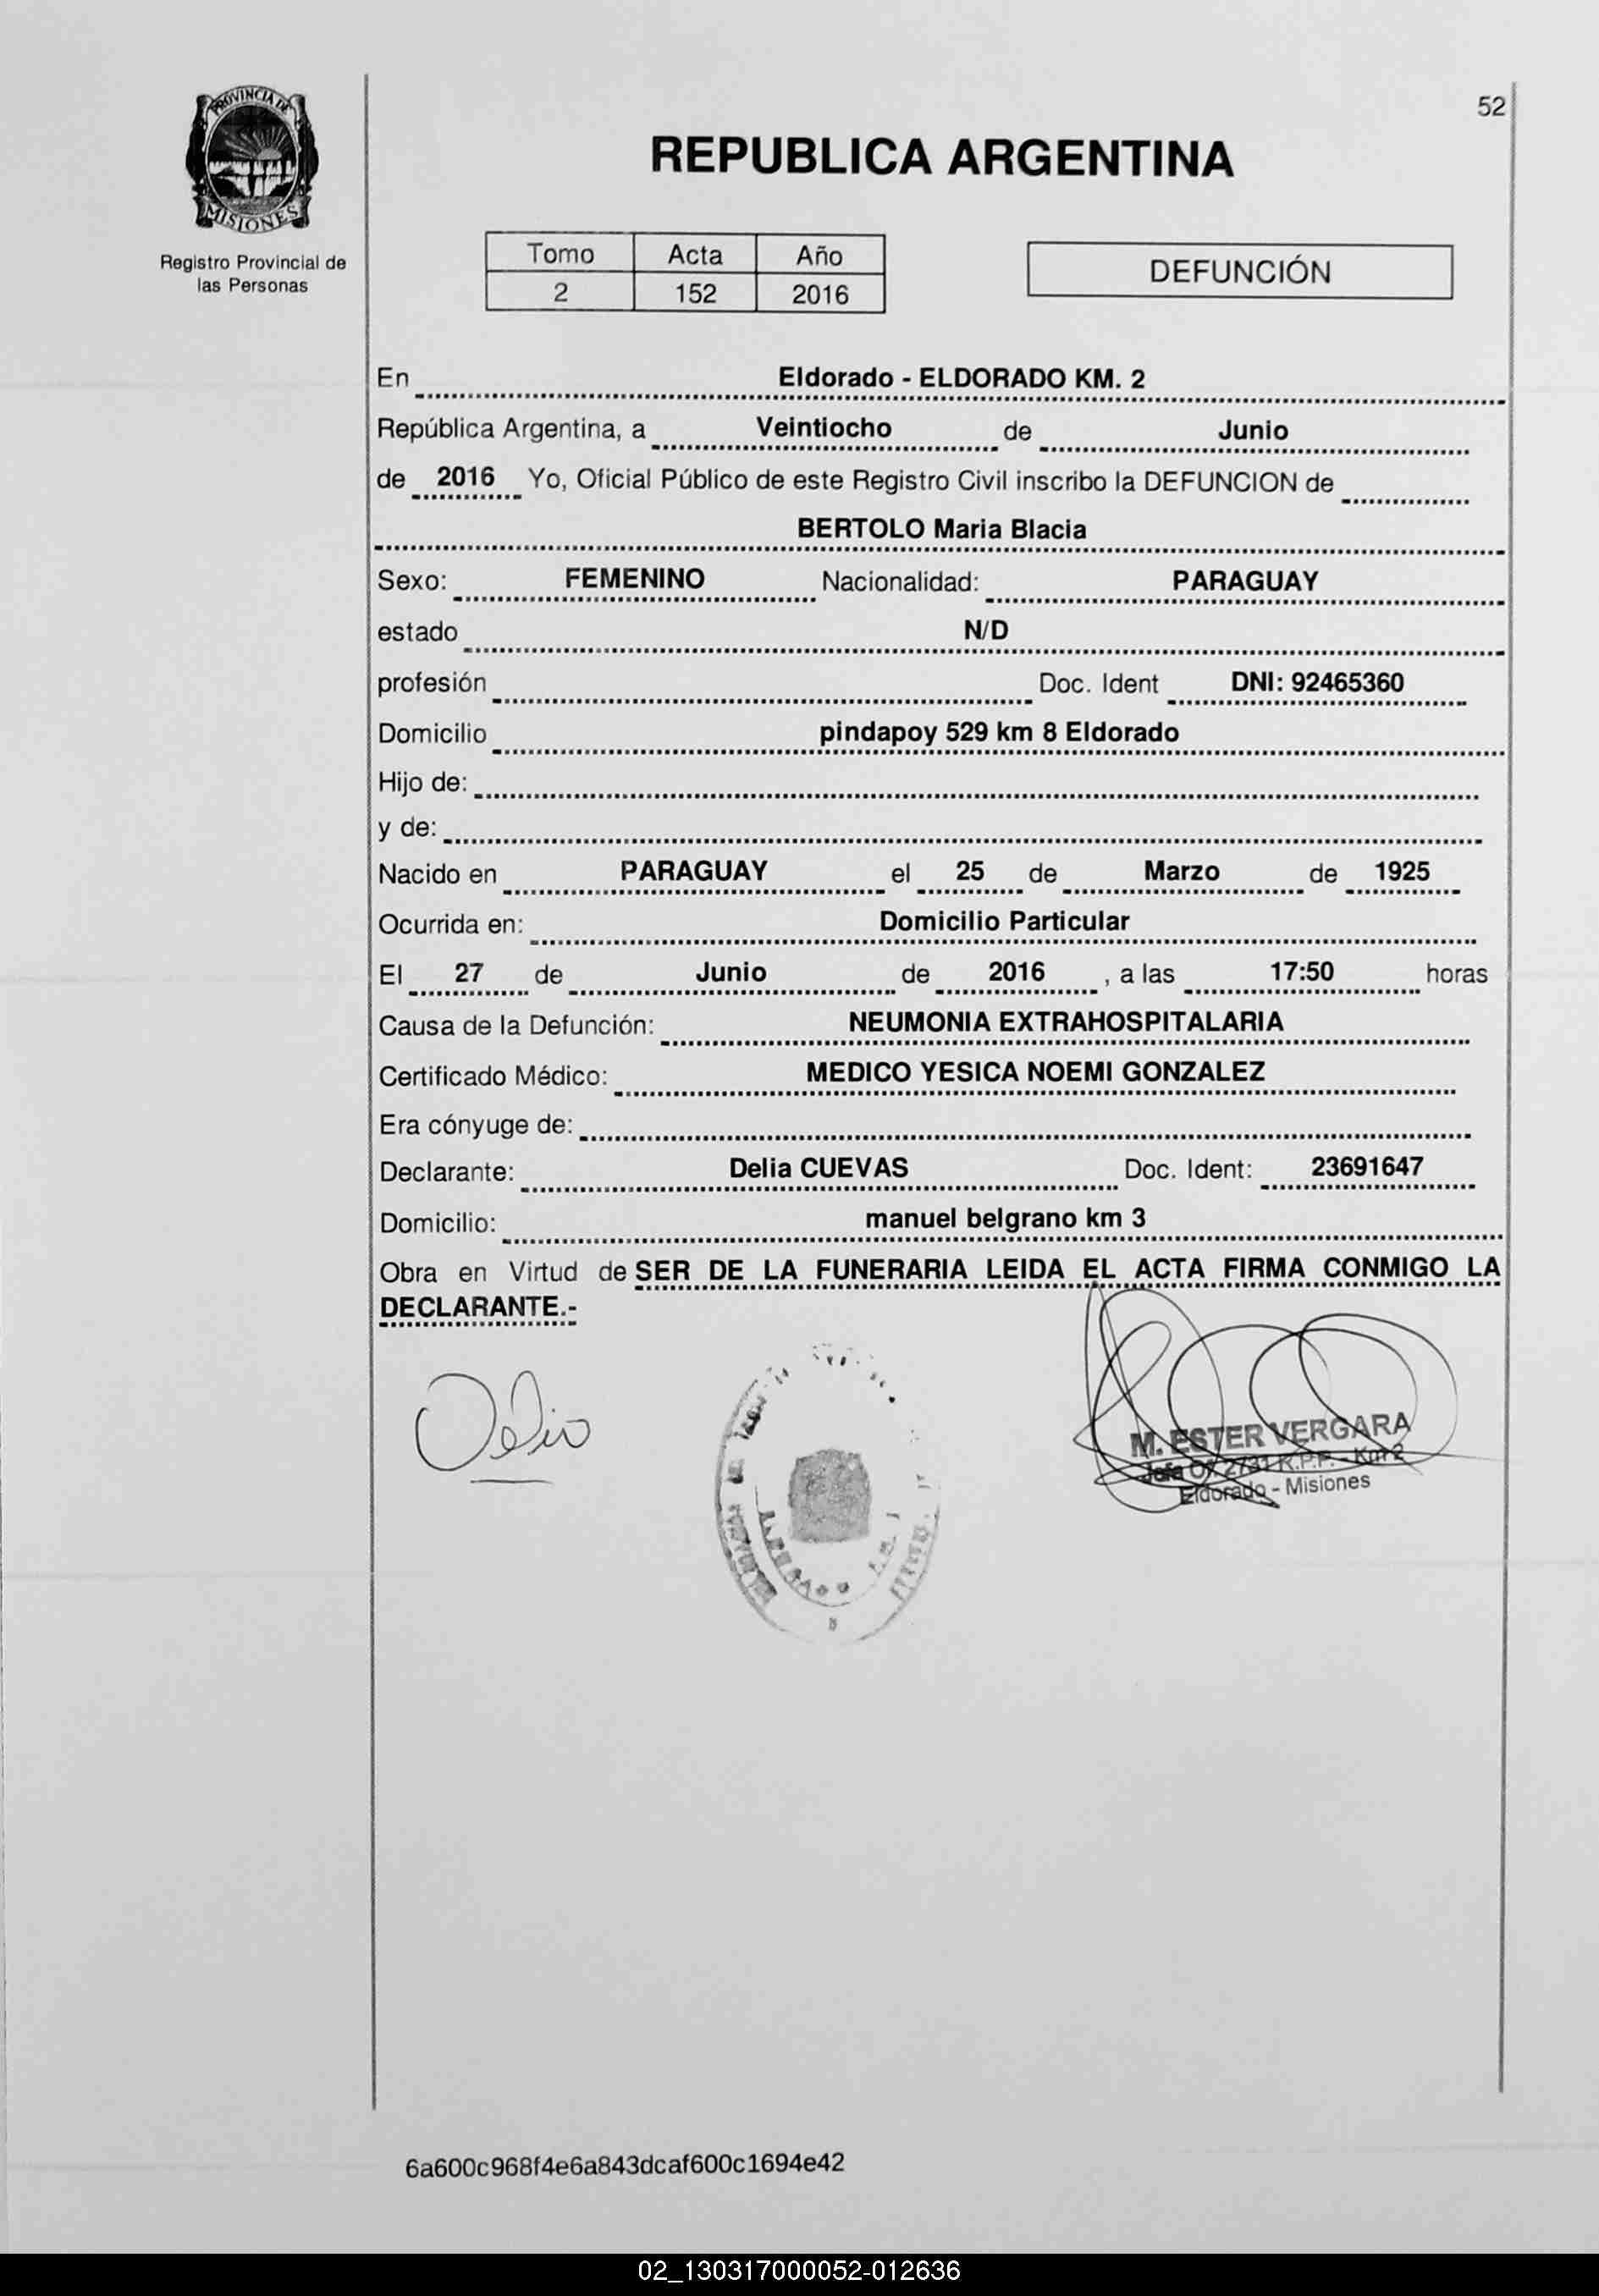 52
PROVINCIA DE
MISIONES
Registro Provincial de
las Personas
REPUBLICA ARGENTINA
Tomo Acta Año
2 152 2016
DEFUNCIÓN
En Eldorado - ELDORADO KM. 2
República Argentina, a Veintiocho de Junio
de 2016 Yo, Oficial Público de este Registro Civil inscribo la DEFUNCION de
BERTOLO Maria Blacia
Sexo: FEMENINO Nacionalidad: PARAGUAY
estado N/D
profesión Doc. Ident DNI: 92465360
Domicilio pindapoy 529 km 8 Eldorado
Hijo de:
y de:
Nacido en PARAGUAY el 25 de Marzo de 1925
Ocurrida en: Domicilio Particular
El 27 de Junio de 2016 , a las 17:50 horas
Causa de la Defunción: NEUMONIA EXTRAHOSPITALARIA
Certificado Médico: MEDICO YESICA NOEMI GONZALEZ
Era cónyuge de:
Declarante: Delia CUEVAS Doc. Ident: 23691647
Domicilio: manuel belgrano km 3
Obra en Virtud de SER DE LA FUNERARIA LEIDA EL ACTA FIRMA CONMIGO LA
DECLARANTE.-
M. ESTER VERGARA
Jefa Of. 2731 R.P.P. - Km 2
Eldorado - Misiones
6a600c968f4e6a843dcaf600c1694e42
02_130317000052-012636